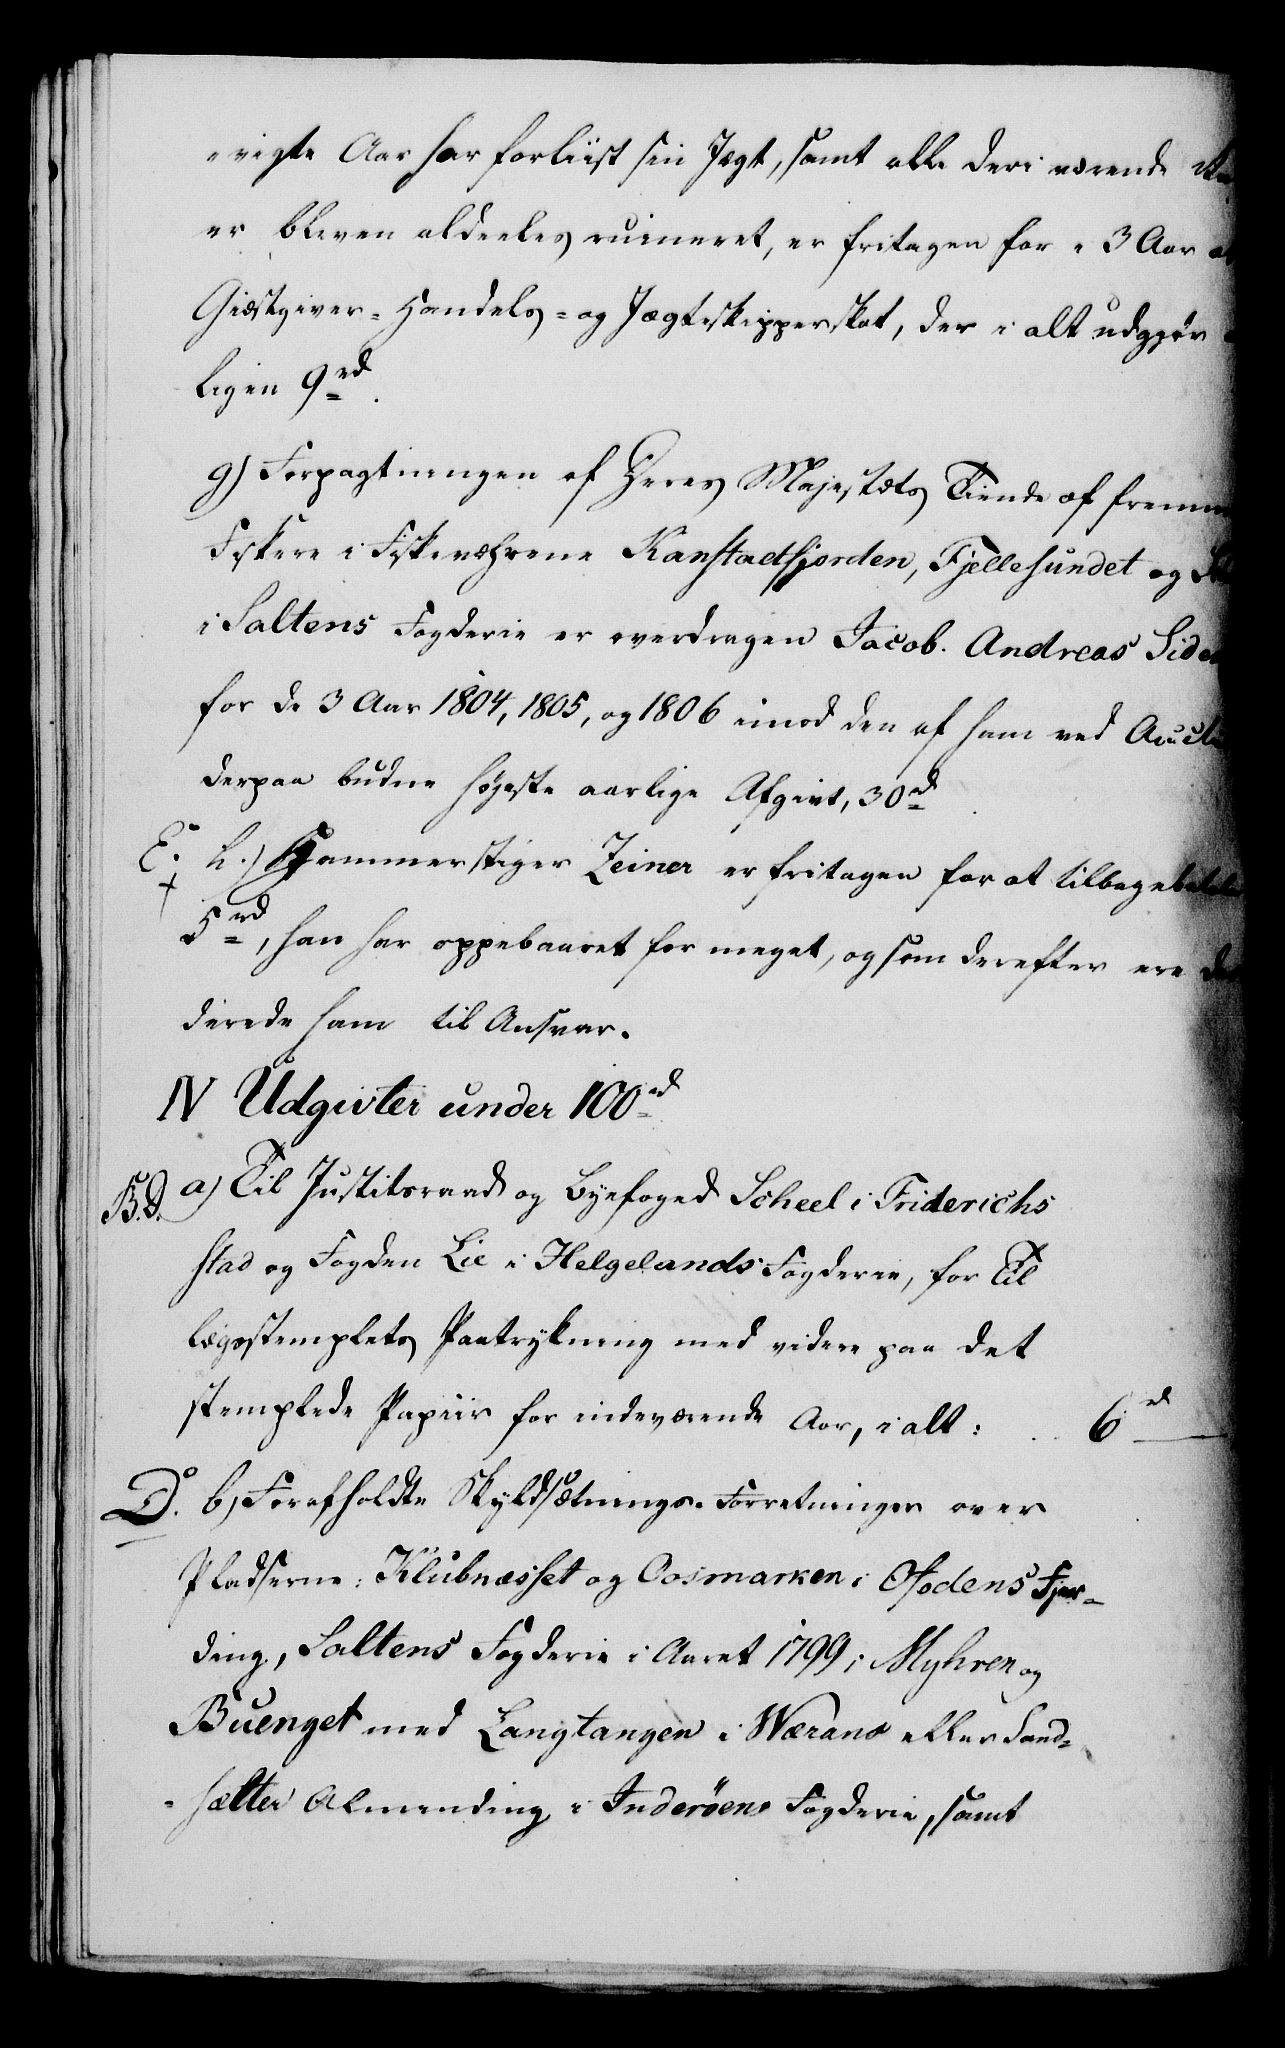 vigte Aar har forliist sin Jægt, samt alle deri værende
er bleven aldeeles ruineret, er fritagen for i 3 Aar
Giæstgiver- Handels- og Jægteskipperskat, der i alt udgjør
ligen 9 rd.
g) Forpagtningen af Deres Majestæts Tiende af fremm
Fiskere i Fiskeværene Kanstadfjorden, Fjellesundet og
i Saltens Fogderie er overdragen Jacob Andreas
for de 3 Aar 1804, 1805, og 1806 imod den af ham ved Auct
derpaa budne høyeste aarlige Afgivt, 30 rd.
E. h.) Hammerstiger Zeiner er fritagen for at tilbagebetale
+
5 rd, han har oppebaaret for meget, og som derefter ere
direde ham til Ansvar.
IV Udgivter under 100 rd
B.D. a) Til Justitsraad og Byefoged Scheel i Friderichs
stad og Fogden Lie i Helgelands Fogderie, for Til
lægsstemplets Paatrykning med videre paa det
stemplede Papiir for indeværende Aar, i alt: . . 6 rd
D. b) For afholdte Skyldsætnings-Forretninger over
Pladserne: Klubnæsset og Oosmarken i Ofodens Fjer-
ding, Saltens Fogderie i Aaret 1799; Myhren og
Buenget med Langtangen i Værans eller Sand-
-sætter Almending i Inderøens Fogderie, samt